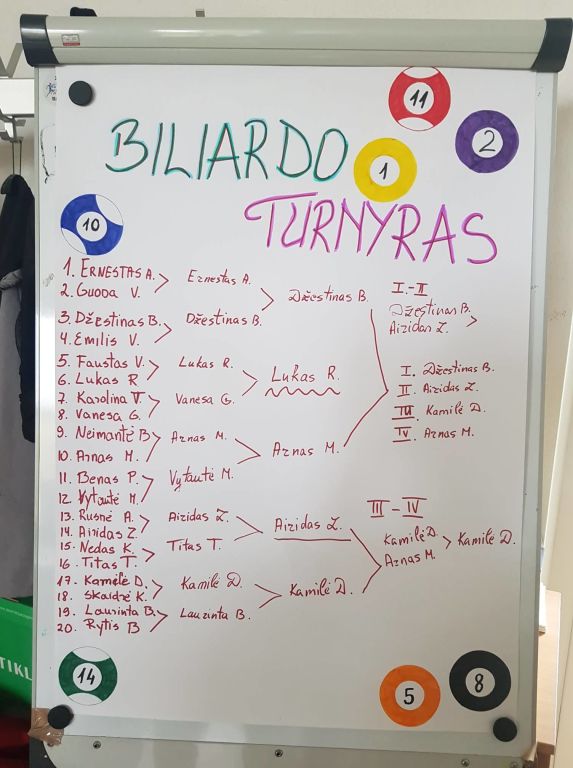 11
2
BILIARDO
1
TURNYRAS
10
1. ERNESTAS A.
2. GUODA V.
Ernestas A.
Džestinas B.
3. Džestinas B.
4. Emilis V.
Džestinas B.
5. Faustas V.
6. Lukas R
Lukas R.
7. Karolina V.
8. Vanesa G.
Vanesa G.
Lukas R.
9. Neimantė B
10. Arnas M.
Arnas M.
11. Benas P.
12. Vytautė M.
Vytautė M.
Arnas M.
13. Rusnė A.
14. Airidas Z.
Airidas Z.
15. Nedas K.
16. Titas T.
Titas T.
Airidas Z.
17. Kamilė D.
18. Skaidrė K.
Kamilė D.
19. Laurinta B.
20. Rytis B
Laurinta B.
Kamilė D.
I.-II
Džestinas B.
Airidas Z.
I. Džestinas B.
II. Airidas Z.
III. Kamilė D.
IV. Arnas M.
III-IV
Kamilė D.
Arnas M.
Kamilė D.
14
5
8
TIKL